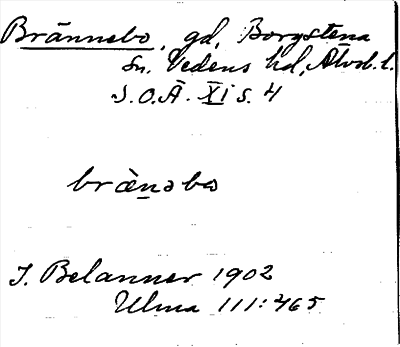 Brännebo, gd, Borgstena
sn. Vedens hd, Älvsb. l.
S.O.Ä. XI s. 4
brænəbo
I. Belanner 1902
Ulma 111:465